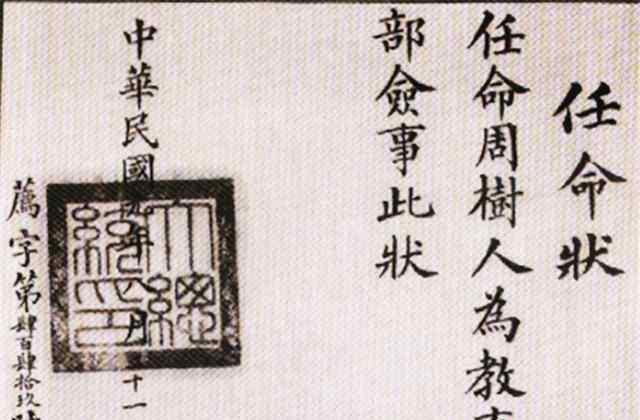 任命狀
任命周樹人為教
部僉事此狀
中華民國元年 月 十一
大總統印
薦字第肆百肆拾玖